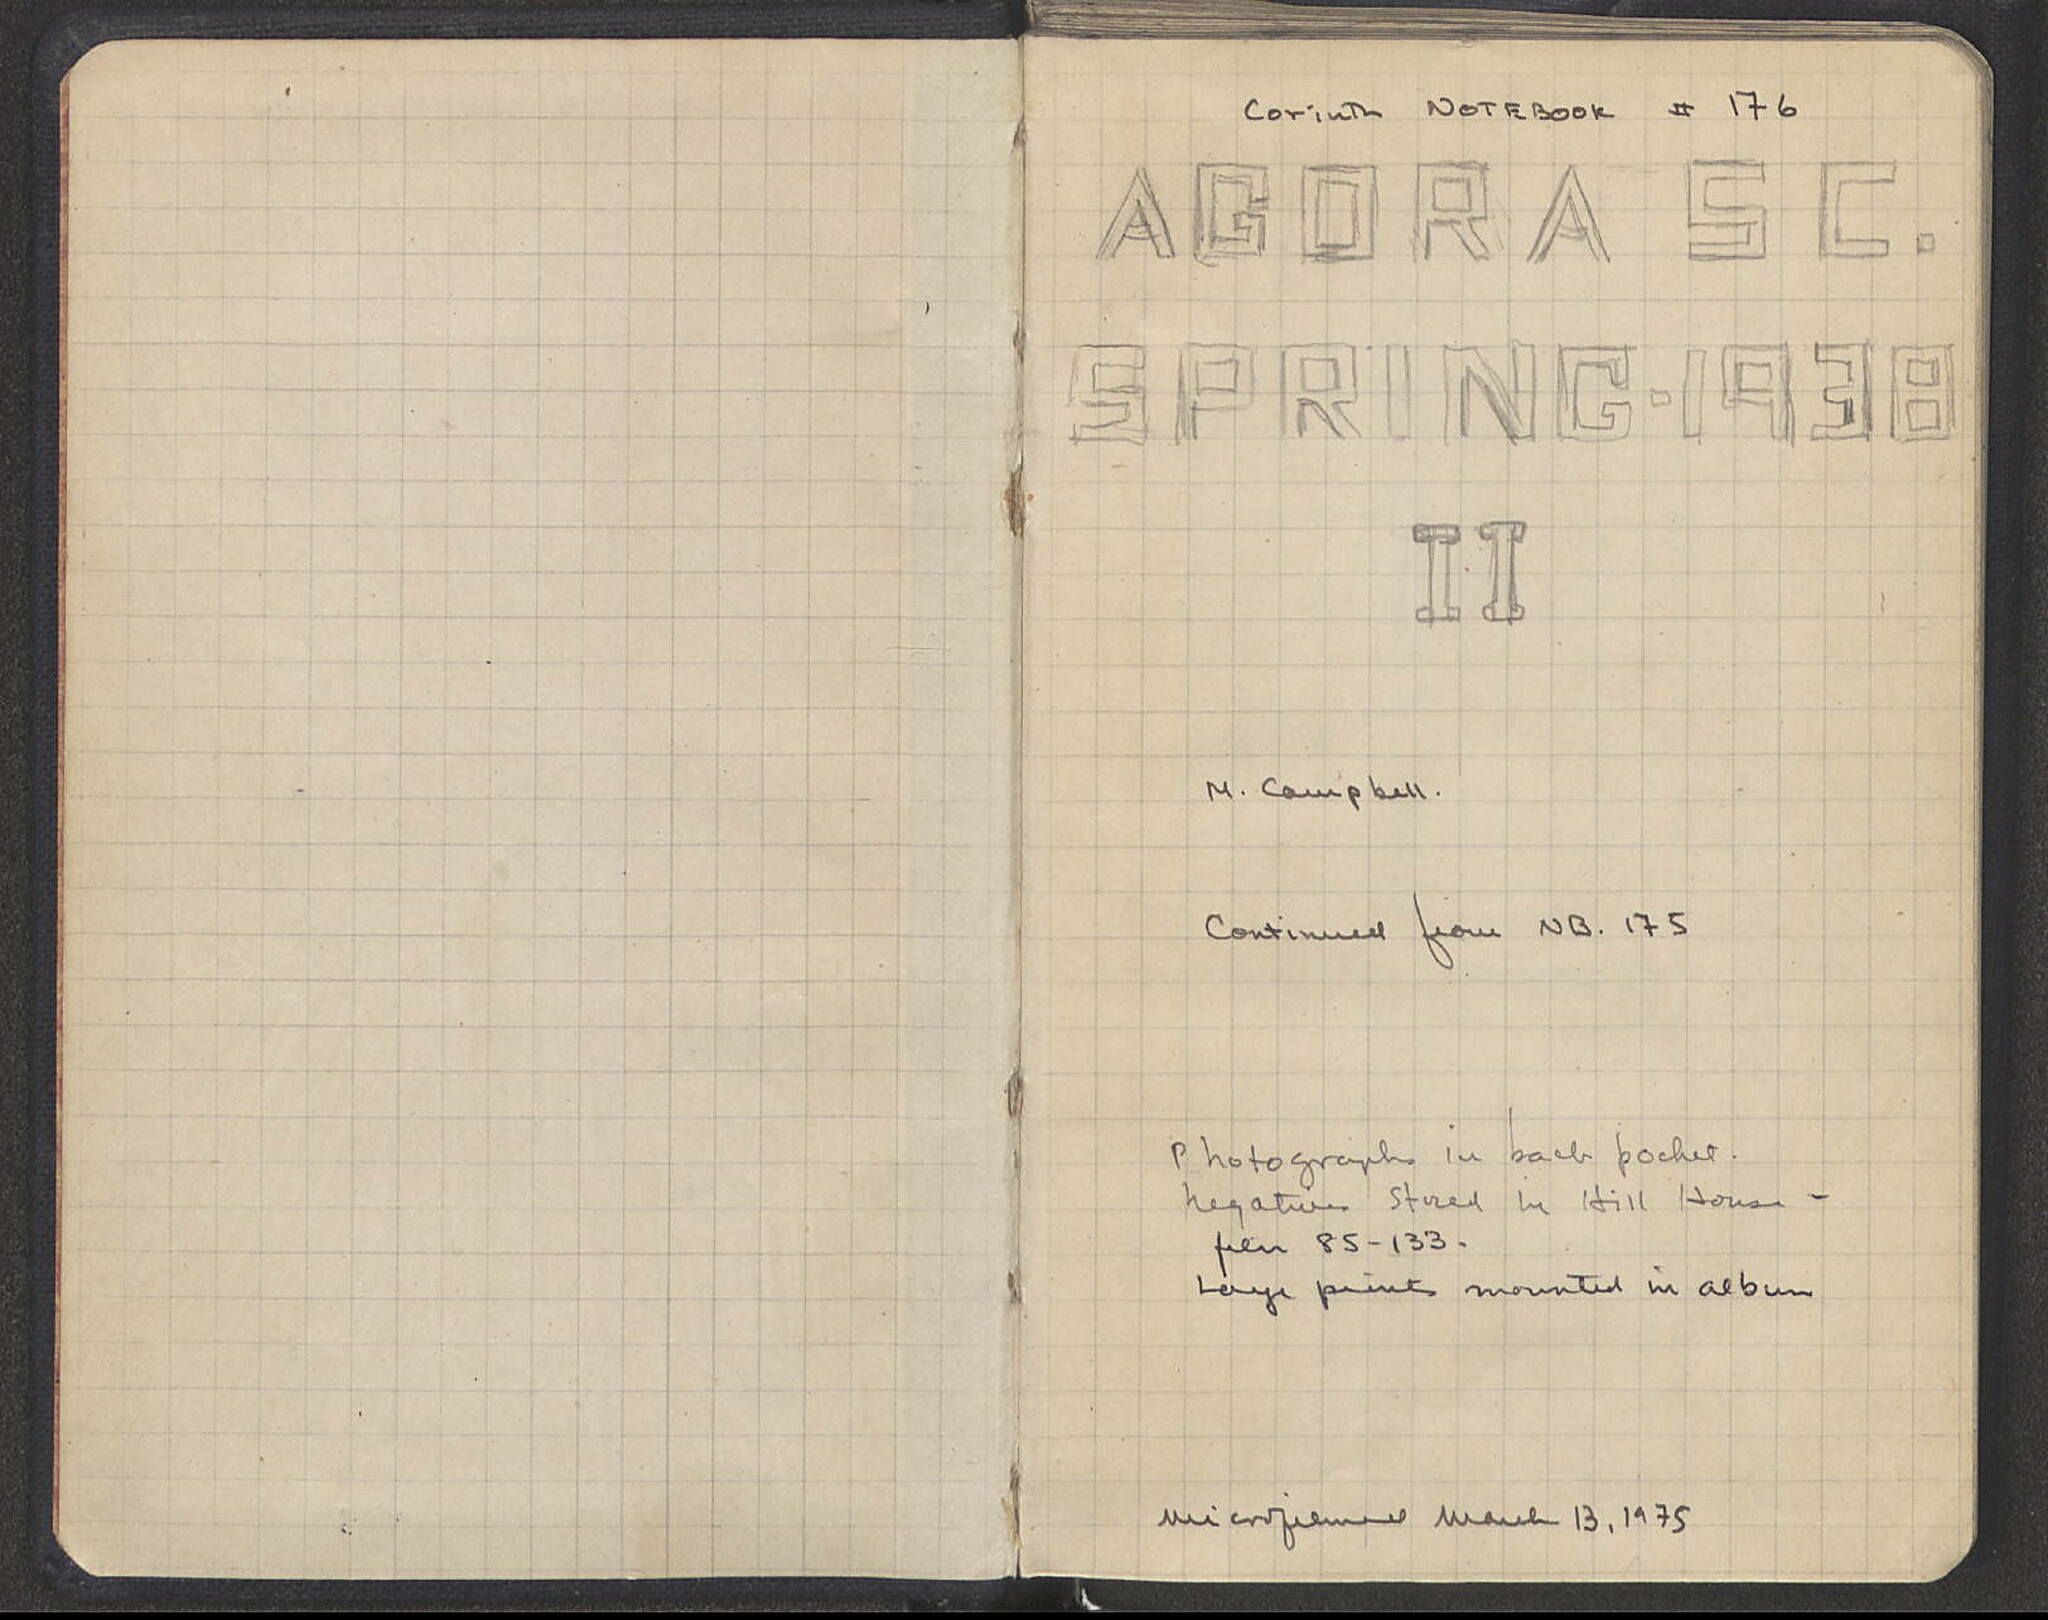 Corinth NOTEBOOK # 176
AGORA SC.
SPRING·1938
II
M. Campbell.
Continued from NB. 175
Photographs in back pocket.
Negatives stored in Hill House -
film 85-133.
Large prints mounted in album
Microfilmed March 13, 1975